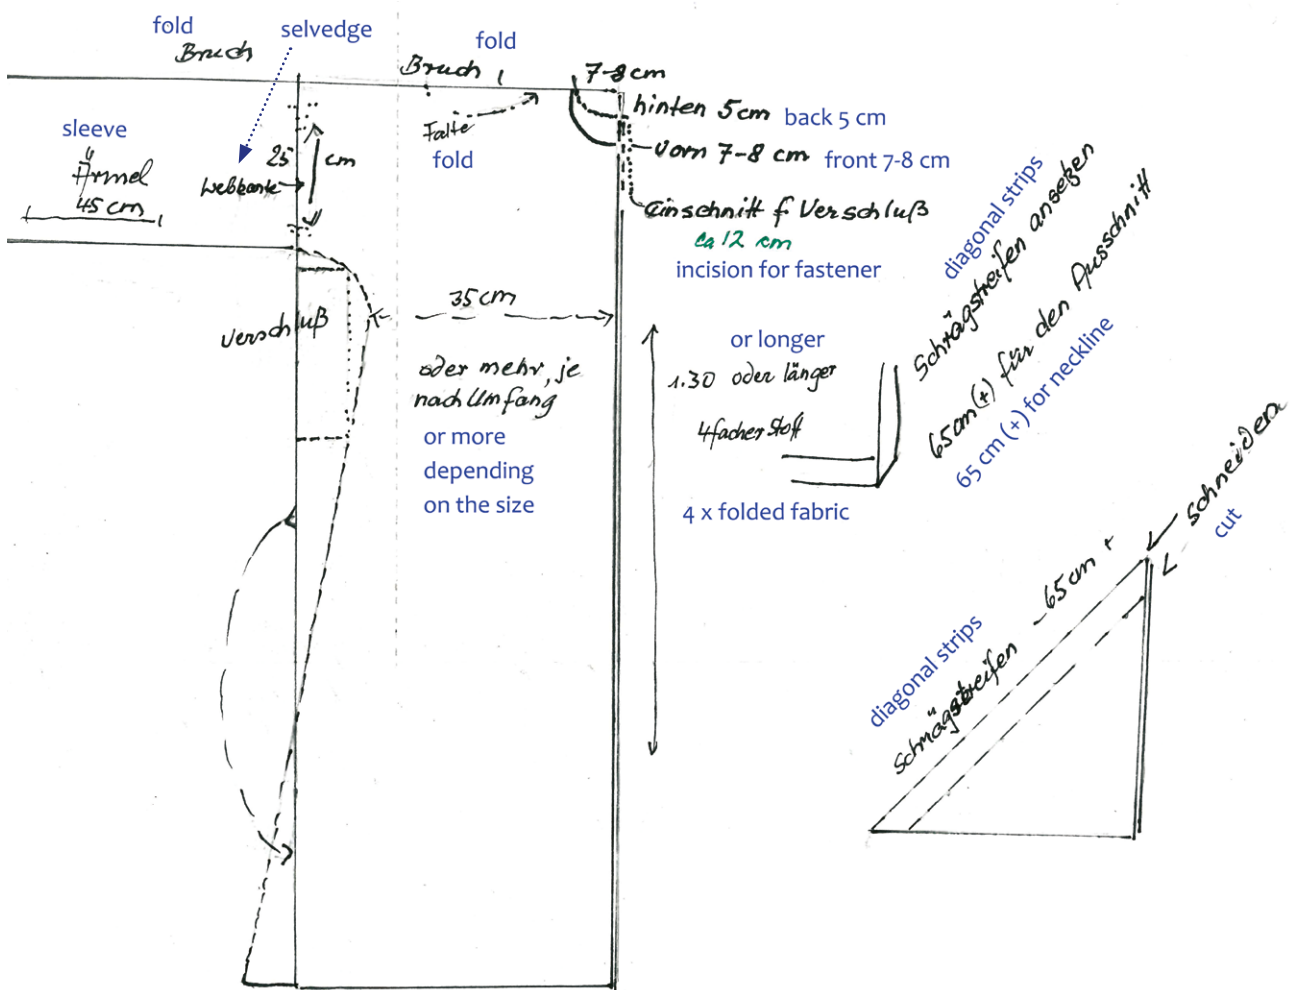 fold
Bruch
selvedge
fold
Bruch
7-8 cm
hinten 5 cm
back 5 cm
Falte
fold
vorn 7-8 cm
front 7-8 cm
sleeve
Ärmel
45 cm
25 cm
Webkante
Einschnitt f Verschluß
ca 12 cm
incision for fastener
35 cm
Verschluß
oder mehr, je
nach Umfang
or more
depending
on the size
or longer
1.30 oder länger
4facher Stoff
4 x folded fabric
diagonal strips
Schrägstreifen ansetzen
65 cm (+) für den Ausschnitt
65 cm (+) for neckline
schneiden
cut
diagonal strips
Schrägstreifen - 65 cm +